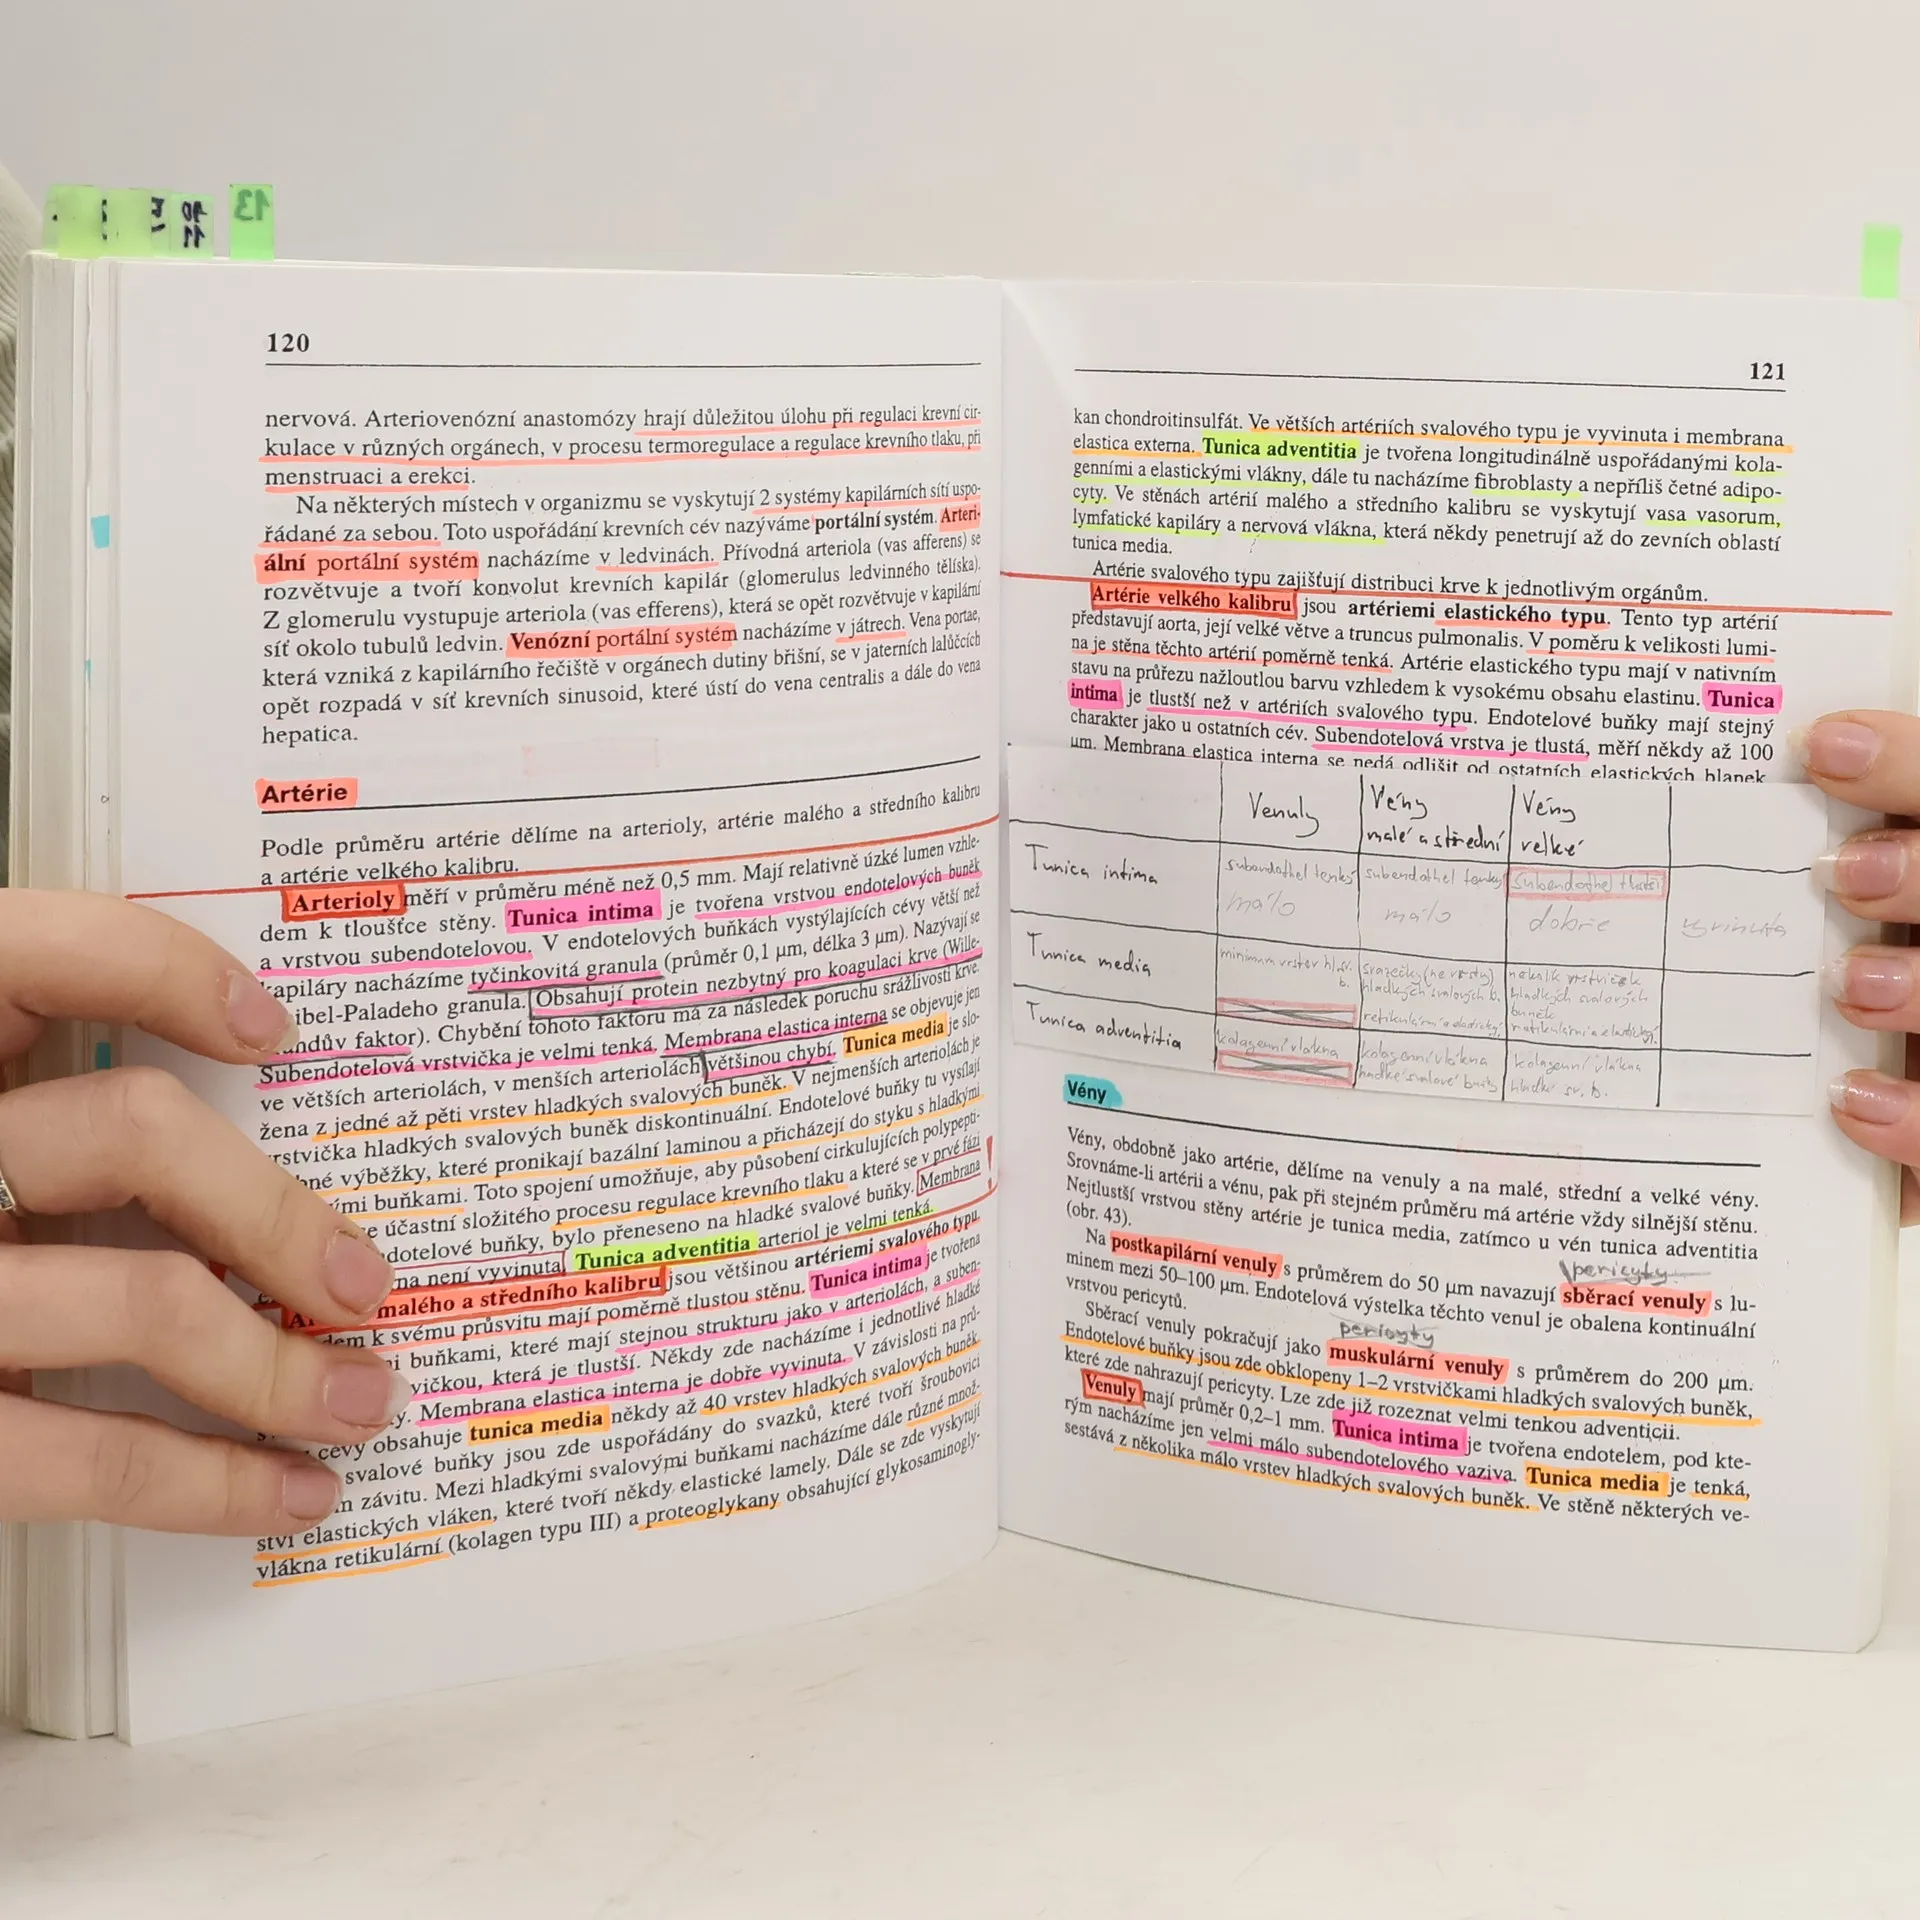 13
10
11
120
nervová. Arteriovenózní anastomózy hrají důležitou úlohu při regulaci krevní cir-
kulace v různých orgánech, v procesu termoregulace a regulace krevního tlaku, při
menstruaci a erekci.
Na některých místech v organizmu se vyskytují 2 systémy kapilárních sítí uspo-
řádané za sebou. Toto uspořádání krevních cév nazýváme portální systém. Arteri-
ální portální systém nacházíme v ledvinách. Přívodná arteriola (vas afferens) se
rozvětvuje a tvoří konvolut krevních kapilár (glomerulus ledvinného tělíska).
Z glomerulu vystupuje arteriola (vas efferens), která se opět rozvětvuje v kapilární
síť okolo tubulů ledvin. Venózní portální systém nacházíme v játrech. Vena portae,
která vzniká z kapilárního řečiště v orgánech dutiny břišní, se v jaterních lalůčcích
opět rozpadá v síť krevních sinusoid, které ústí do vena centralis a dále do vena
hepatica.
Artérie
Podle průměru artérie dělíme na arterioly, artérie malého a středního kalibru
a artérie velkého kalibru.
Arterioly měří v průměru méně než 0,5 mm. Mají relativně úzké lumen vzhle-
dem k tloušťce stěny. Tunica intima je tvořena vrstvou endotelových buněk
a vrstvou subendotelovou. V endotelových buňkách vystýlajících cévy větší než
kapiláry nacházíme tyčinkovitá granula (průměr 0,1 µm, délka 3 µm). Nazývají se
ibel-Paladeho granula. Obsahují protein nezbytný pro koagulaci krve (Wille-
ndův faktor). Chybění tohoto faktoru má za následek poruchu srážlivosti krve.
Subendotelová vrstvička je velmi tenká. Membrana elastica interna se objevuje jen
ve větších arteriolách, v menších arteriolách většinou chybí. Tunica media je slo-
žena z jedné až pěti vrstev hladkých svalových buněk. V nejmenších arteriolách je
rstvička hladkých svalových buněk diskontinuální. Endotelové buňky tu vysílají
né výběžky, které pronikají bazální laminou a přicházejí do styku s hladkými
ými buňkami. Toto spojení umožňuje, aby působení cirkulujících polypepti-
e účastní složitého procesu regulace krevního tlaku a které se v prvé fázi
dotelové buňky, bylo přeneseno na hladké svalové buňky. Membrana !
na není vyvinuta. Tunica adventitia arteriol je velmi tenká.
malého a středního kalibru jsou většinou artériemi svalového typu.
dem k svému průsvitu mají poměrně tlustou stěnu. Tunica intima je tvořena
i buňkami, které mají stejnou strukturu jako v arteriolách, a suben-
vičkou, která je tlustší. Někdy zde nacházíme i jednotlivé hladké
y. Membrana elastica interna je dobře vyvinuta. V závislosti na prů-
cévy obsahuje tunica media někdy až 40 vrstev hladkých svalových buněk.
svalové buňky jsou zde uspořádány do svazků, které tvoří šroubovici
m závitu. Mezi hladkými svalovými buňkami nacházíme dále různé množ-
ství elastických vláken, které tvoří někdy elastické lamely. Dále se zde vyskytují
vlákna retikulární (kolagen typu III) a proteoglykany obsahující glykosaminogly-
121
kan chondroitinsulfát. Ve větších artériích svalového typu je vyvinuta i membrana
elastica externa. Tunica adventitia je tvořena longitudinálně uspořádanými kola-
genními a elastickými vlákny, dále tu nacházíme fibroblasty a nepříliš četné adipo-
cyty. Ve stěnách artérií malého a středního kalibru se vyskytují vasa vasorum,
lymfatické kapiláry a nervová vlákna, která někdy penetrují až do zevních oblastí
tunica media.
Artérie svalového typu zajišťují distribuci krve k jednotlivým orgánům.
Artérie velkého kalibru jsou artériemi elastického typu. Tento typ artérií
představují aorta, její velké větve a truncus pulmonalis. V poměru k velikosti lumi-
na je stěna těchto artérií poměrně tenká. Artérie elastického typu mají v nativním
stavu na průřezu nažloutlou barvu vzhledem k vysokému obsahu elastinu. Tunica
intima je tlustší než v artériích svalového typu. Endotelové buňky mají stejný
charakter jako u ostatních cév. Subendotelová vrstva je tlustá, měří někdy až 100
µm. Membrana elastica interna se nedá odlišit od ostatních elastických blanek
Venuly Vény malé a střední Vény velké
Tunica intima subendothel tenký subendothel tenký subendothel tlustší
málo málo dobře vyvinuta
Tunica media minimum vrstev hl. sv. b. svazečky (ne vrstvy) hladkých svalových b. několik vrstviček hladkých svalových buněk
retikulární a elastický retikulární a elastický
Tunica adventitia kolagenní vlákna kolagenní vlákna kolagenní vlákna
hladké svalové buňky hladké sv. b.
Vény
Vény, obdobně jako artérie, dělíme na venuly a na malé, střední a velké vény.
Srovnáme-li artérii a vénu, pak při stejném průměru má artérie vždy silnější stěnu.
Nejtlustší vrstvou stěny artérie je tunica media, zatímco u vén tunica adventitia
(obr. 43).
pericyty
Na postkapilární venuly s průměrem do 50 µm navazují sběrací venuly s lu-
minem mezi 50–100 µm. Endotelová výstelka těchto venul je obalena kontinuální
vrstvou pericytů.
pericyty
Sběrací venuly pokračují jako muskulární venuly s průměrem do 200 µm.
Endotelové buňky jsou zde obklopeny 1–2 vrstvičkami hladkých svalových buněk,
které zde nahrazují pericyty. Lze zde již rozeznat velmi tenkou adventicii.
Venuly mají průměr 0,2–1 mm. Tunica intima je tvořena endotelem, pod kte-
rým nacházíme jen velmi málo subendotelového vaziva. Tunica media je tenká,
sestává z několika málo vrstev hladkých svalových buněk. Ve stěně některých ve-